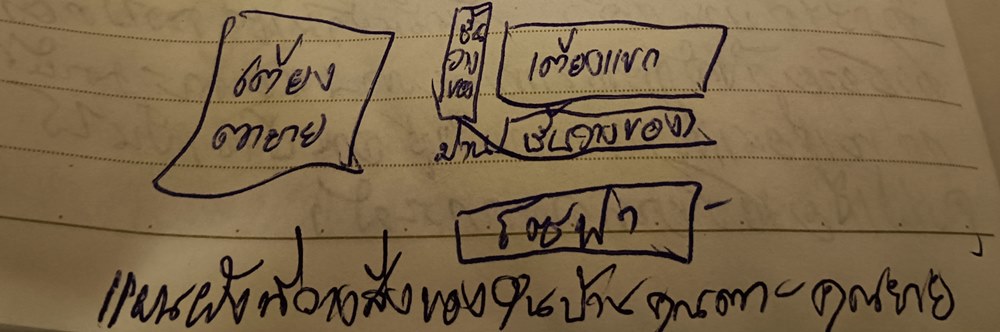 เตียง
ตายาย
ชั้น
วาง
ของ
เตียงแขก
ม่าน
ชั้นวางของ
โซฟา
แผนผังที่วางสิ่งของในบ้านคุณตา-คุณยาย